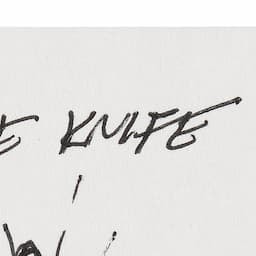 E KNIFE